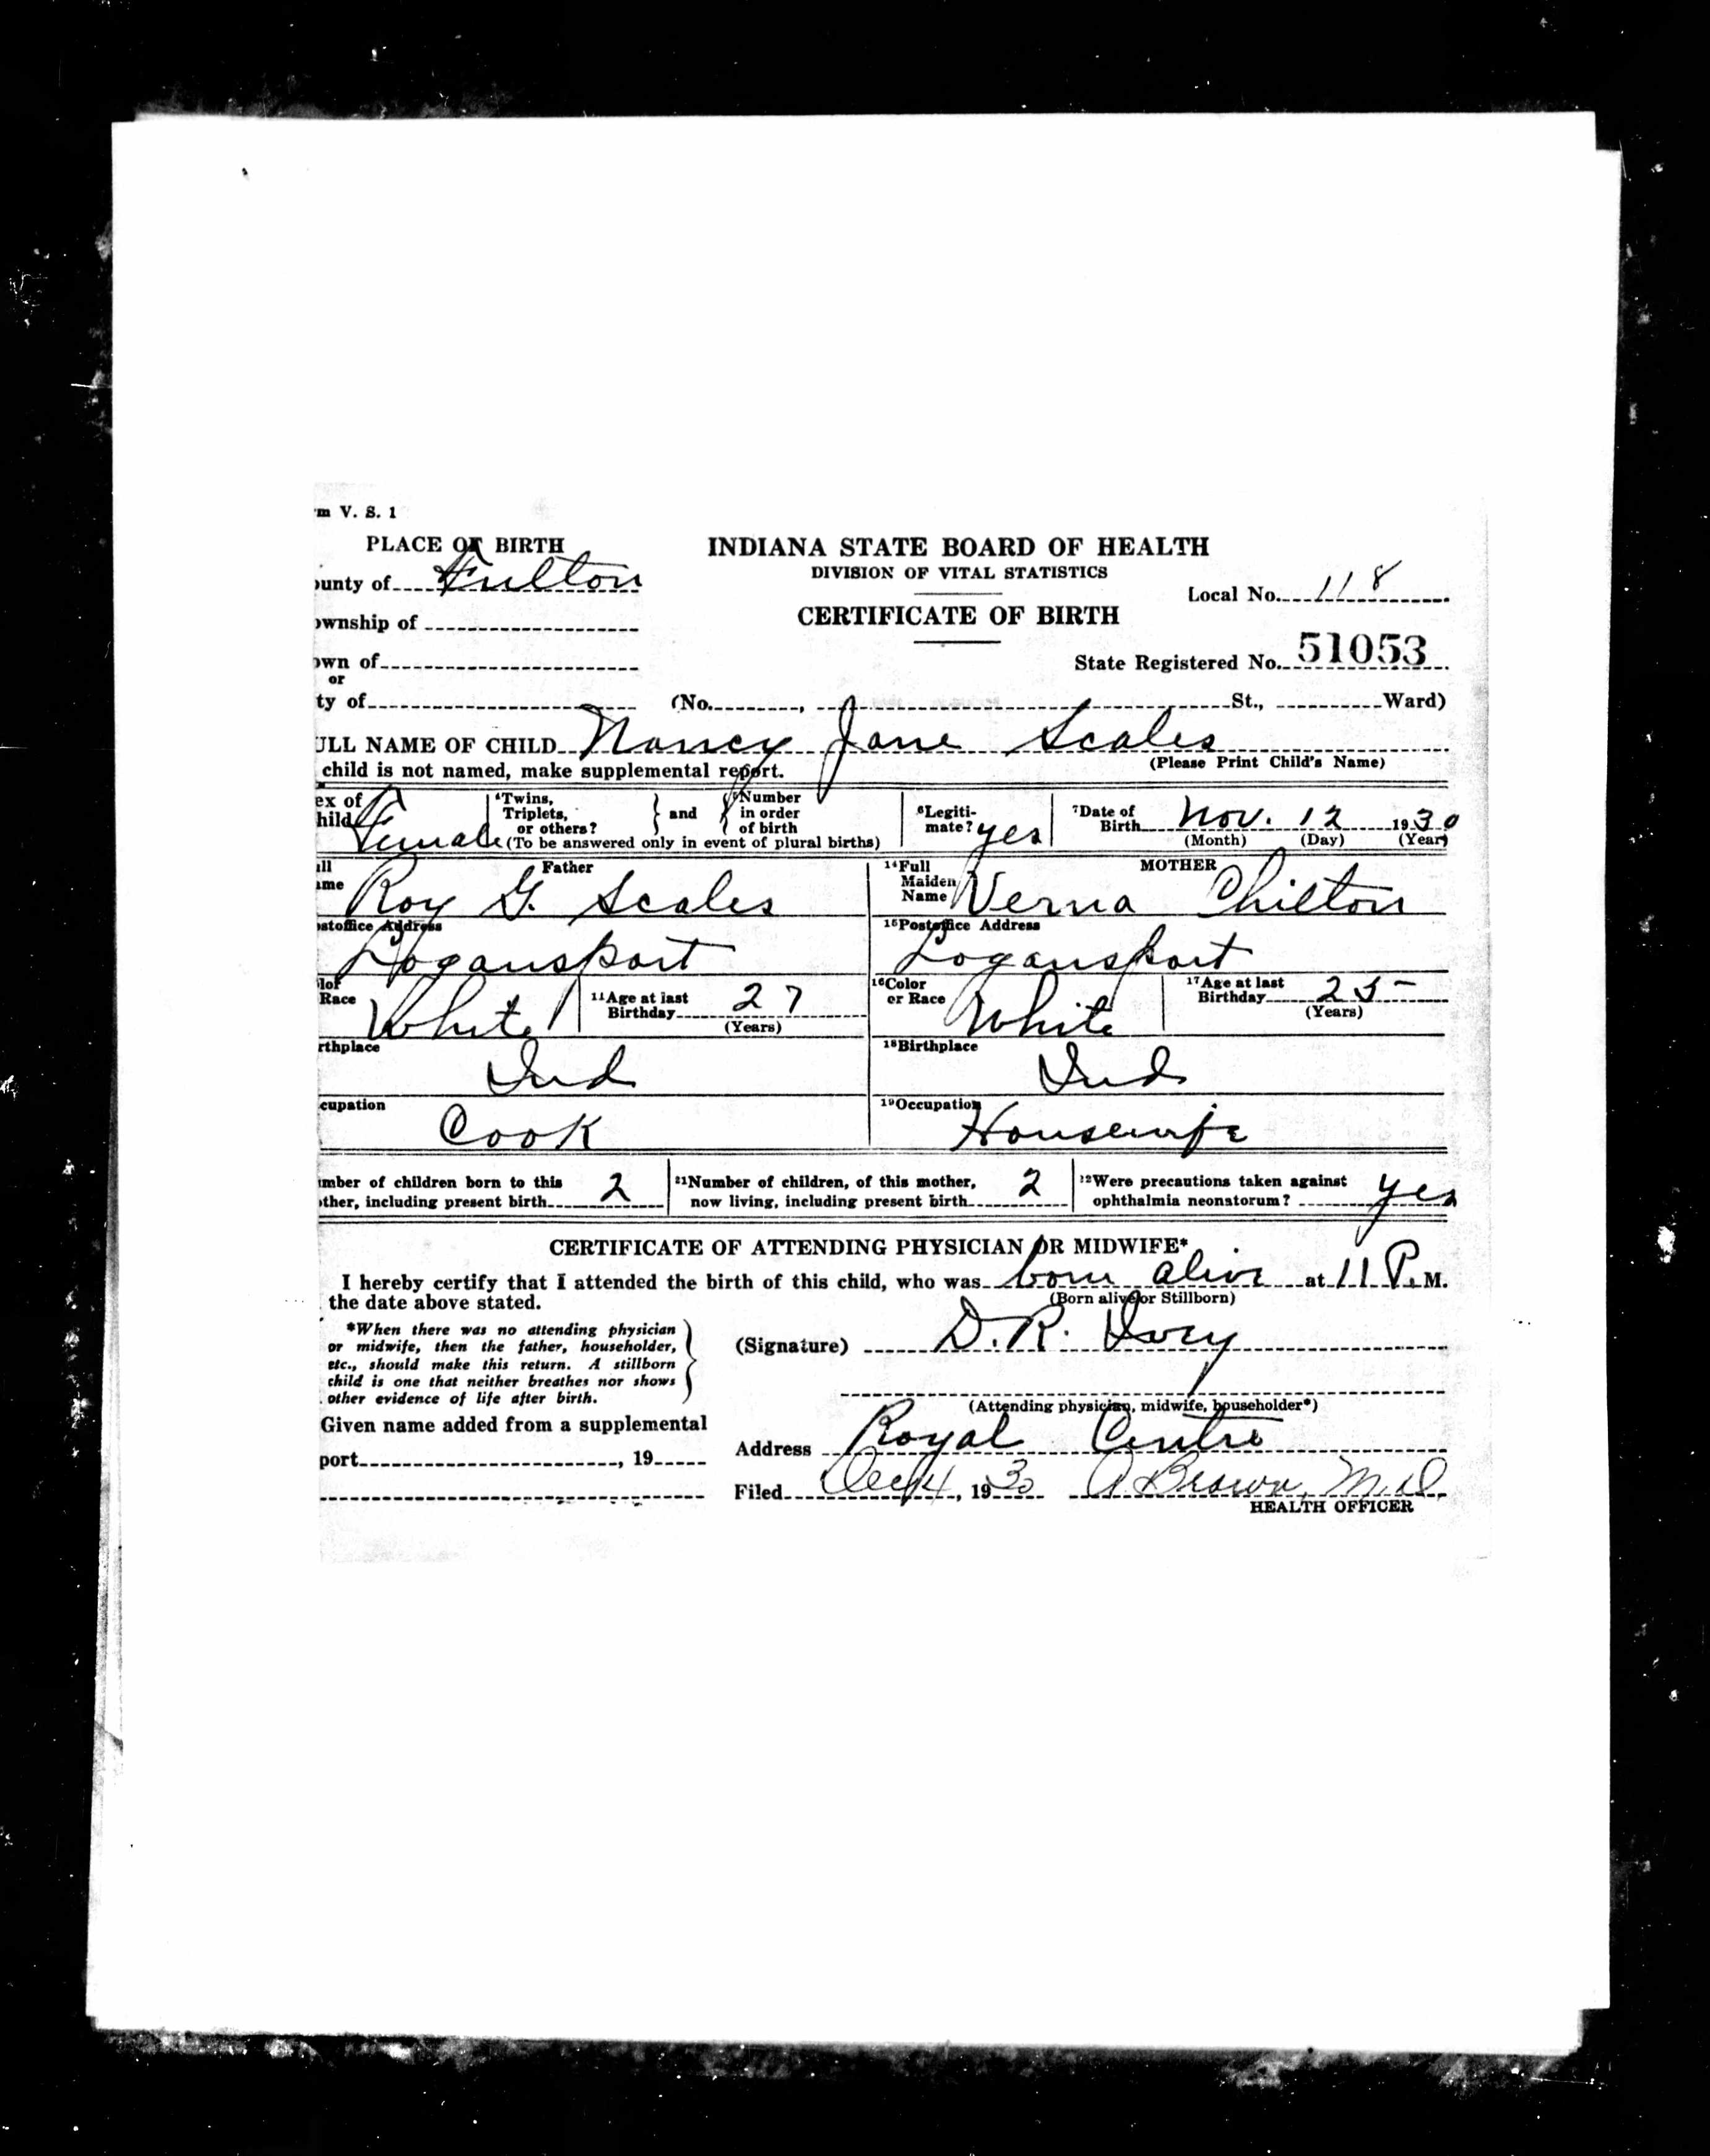 m V. S. 1
PLACE OF BIRTH
ounty of Fulton
ownship of
own of
or
ty of
INDIANA STATE BOARD OF HEALTH
DIVISION OF VITAL STATISTICS
CERTIFICATE OF BIRTH
Local No. 118
State Registered No. 51053
(No. , St., Ward)
ULL NAME OF CHILD Nancy Jane Scales
child is not named, make supplemental report.
(Please Print Child's Name)
ex of
hild Female
4Twins,
Triplets,
or others?
} and {
5Number
in order
of birth
(To be answered only in event of plural births)
6Legiti-
mate? yes
7Date of
Birth Nov. 12 1930
(Month) (Day) (Year)
ull
ame
Father
Roy G. Scales
ostoffice Address
Logansport
lor
Race White
11Age at last
Birthday 27
(Years)
rthplace
Ind
cupation
Cook
14Full
Maiden
Name
MOTHER
Verna Chilton
15Postoffice Address
Logansport
16Color
or Race White
17Age at last
Birthday 25
(Years)
18Birthplace
Ind
19Occupation
Housewife
mber of children born to this
other, including present birth 2
21Number of children, of this mother,
now living, including present birth 2
22Were precautions taken against
ophthalmia neonatorum? yes
CERTIFICATE OF ATTENDING PHYSICIAN OR MIDWIFE*
I hereby certify that I attended the birth of this child, who was born alive at 11 P. M.
the date above stated.
(Born alive or Stillborn)
*When there was no attending physician
or midwife, then the father, householder,
etc., should make this return. A stillborn
child is one that neither breathes nor shows
other evidence of life after birth.
Given name added from a supplemental
port , 19
(Signature) D. R. Ivey
(Attending physician, midwife, householder*)
Address Royal Centre
Filed Dec 4, 1930 A Brown, M.D.
HEALTH OFFICER